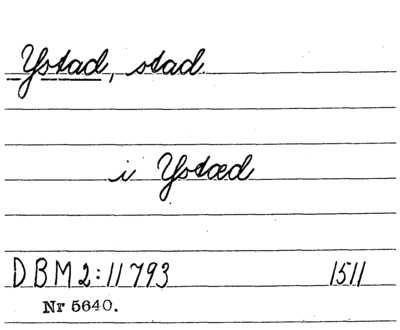 Ystad, stad.
i Ystæd
DBM 2:11793 1511
Nr 5640.